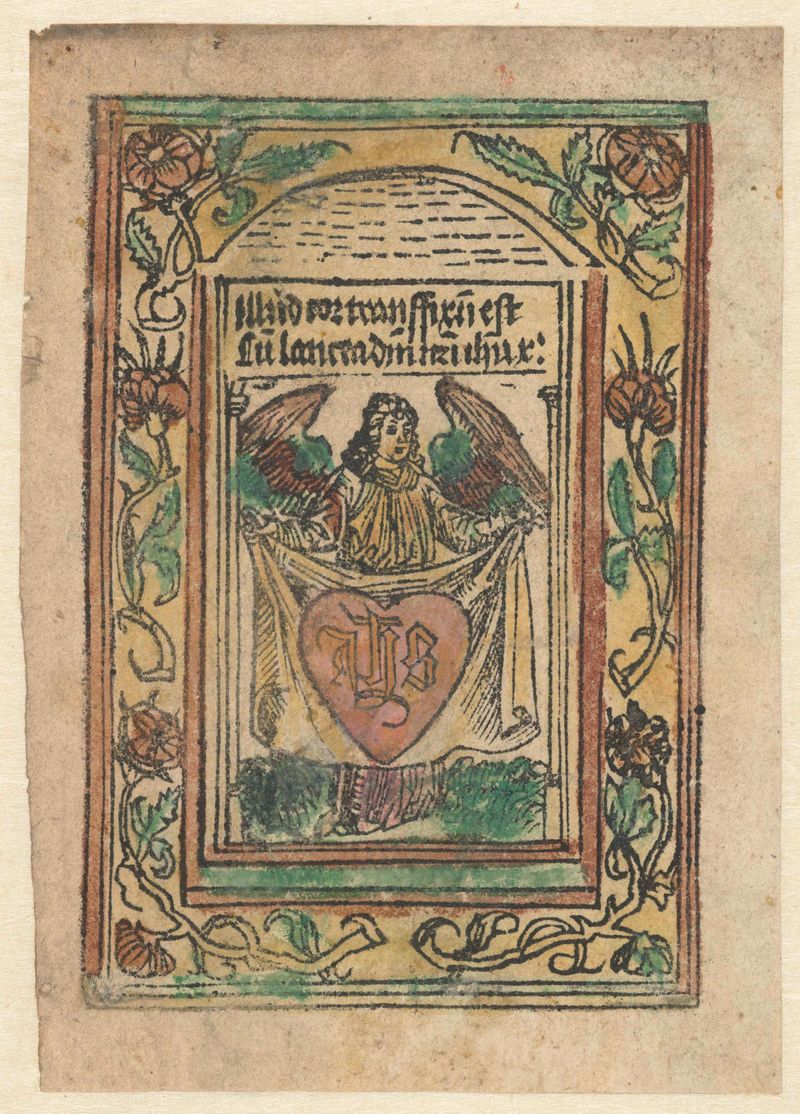 Illud cor transffixū est
Cū lancea dn̄i nr̄i ihu x:
ihs